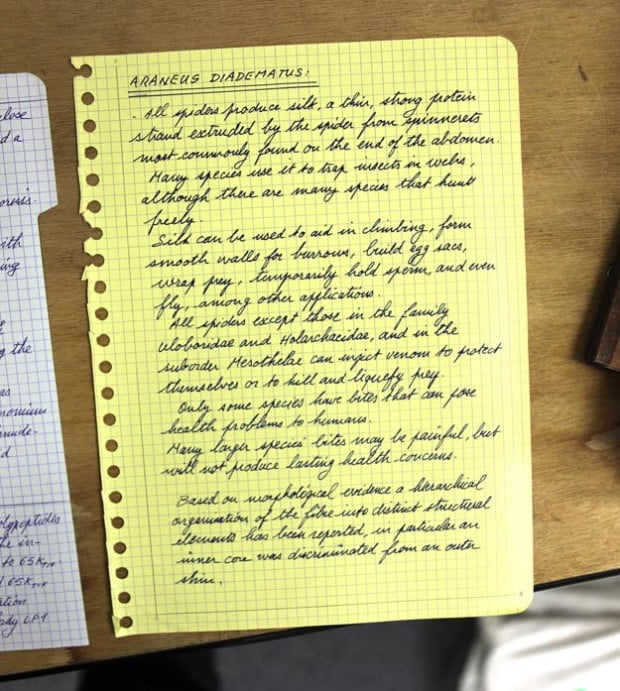 ARANEUS DIADEMATUS:
- All spiders produce silk, a thin, strong protein
strand extruded by the spider from spinnerets
most commonly found on the end of the abdomen.
Many species use it to trap insects in webs,
although there are many species that hunt
freely.
Silk can be used to aid in climbing, form
smooth walls for burrows, build egg sacs,
wrap prey, temporarily hold sperm, and even
fly, among other applications.
All spiders except those in the family
Uloboridae and Holarchaeidae, and in the
suborder Mesothelae can inject venom to protect
themselves or to kill and liquefy prey.
Only some species have bites that can pose
health problems to humans.
Many larger species' bites may be painful, but
will not produce lasting health concerns.
Based on morphological evidence a hierarchical
organisation of the fibre into distinct structural
elements has been reported, in particular an
inner core was discriminated from an outer
skin.
d a
with
the
as
d
olypeptides
the in-
to 65K
ation
ody LP1